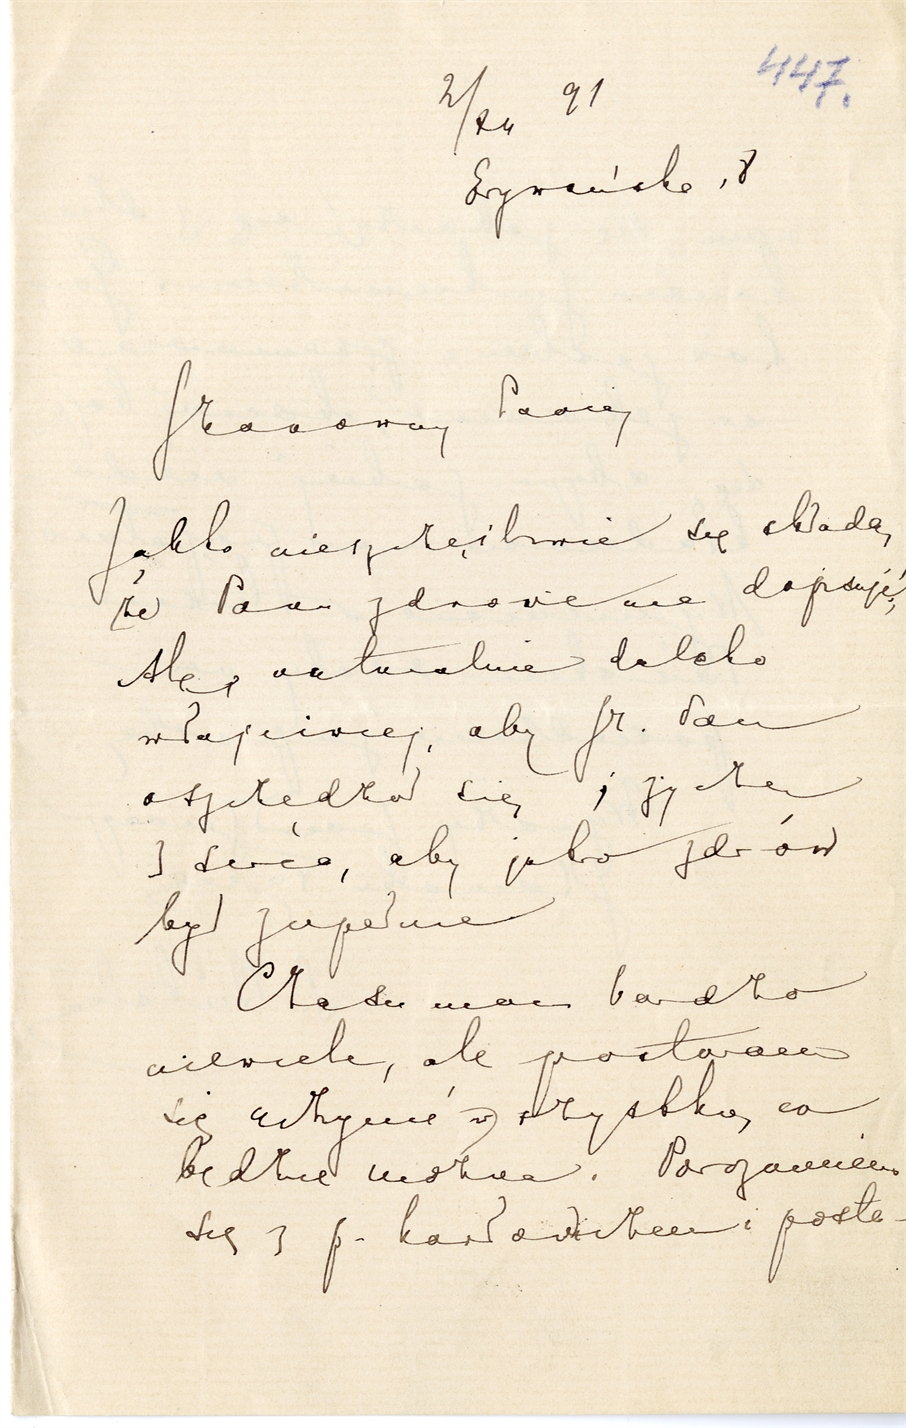 447.
2/XII 91
Erywańska, 8
Szanowny Panie
Jakto nieszczęśliwie się składa,
że Panu zdrowie nie dopisuje,
Ale, naturalnie daleko
właściwiej, aby Sz. Pan
oszczędzał się i życzę
z serca, aby jako zdrów
był zupełnie
Czasu mam bardzo
niewiele, ale postaram
się uczynić wszystko, co
będzie można. Porozumiem
się z p. Karłowiczem i posta-